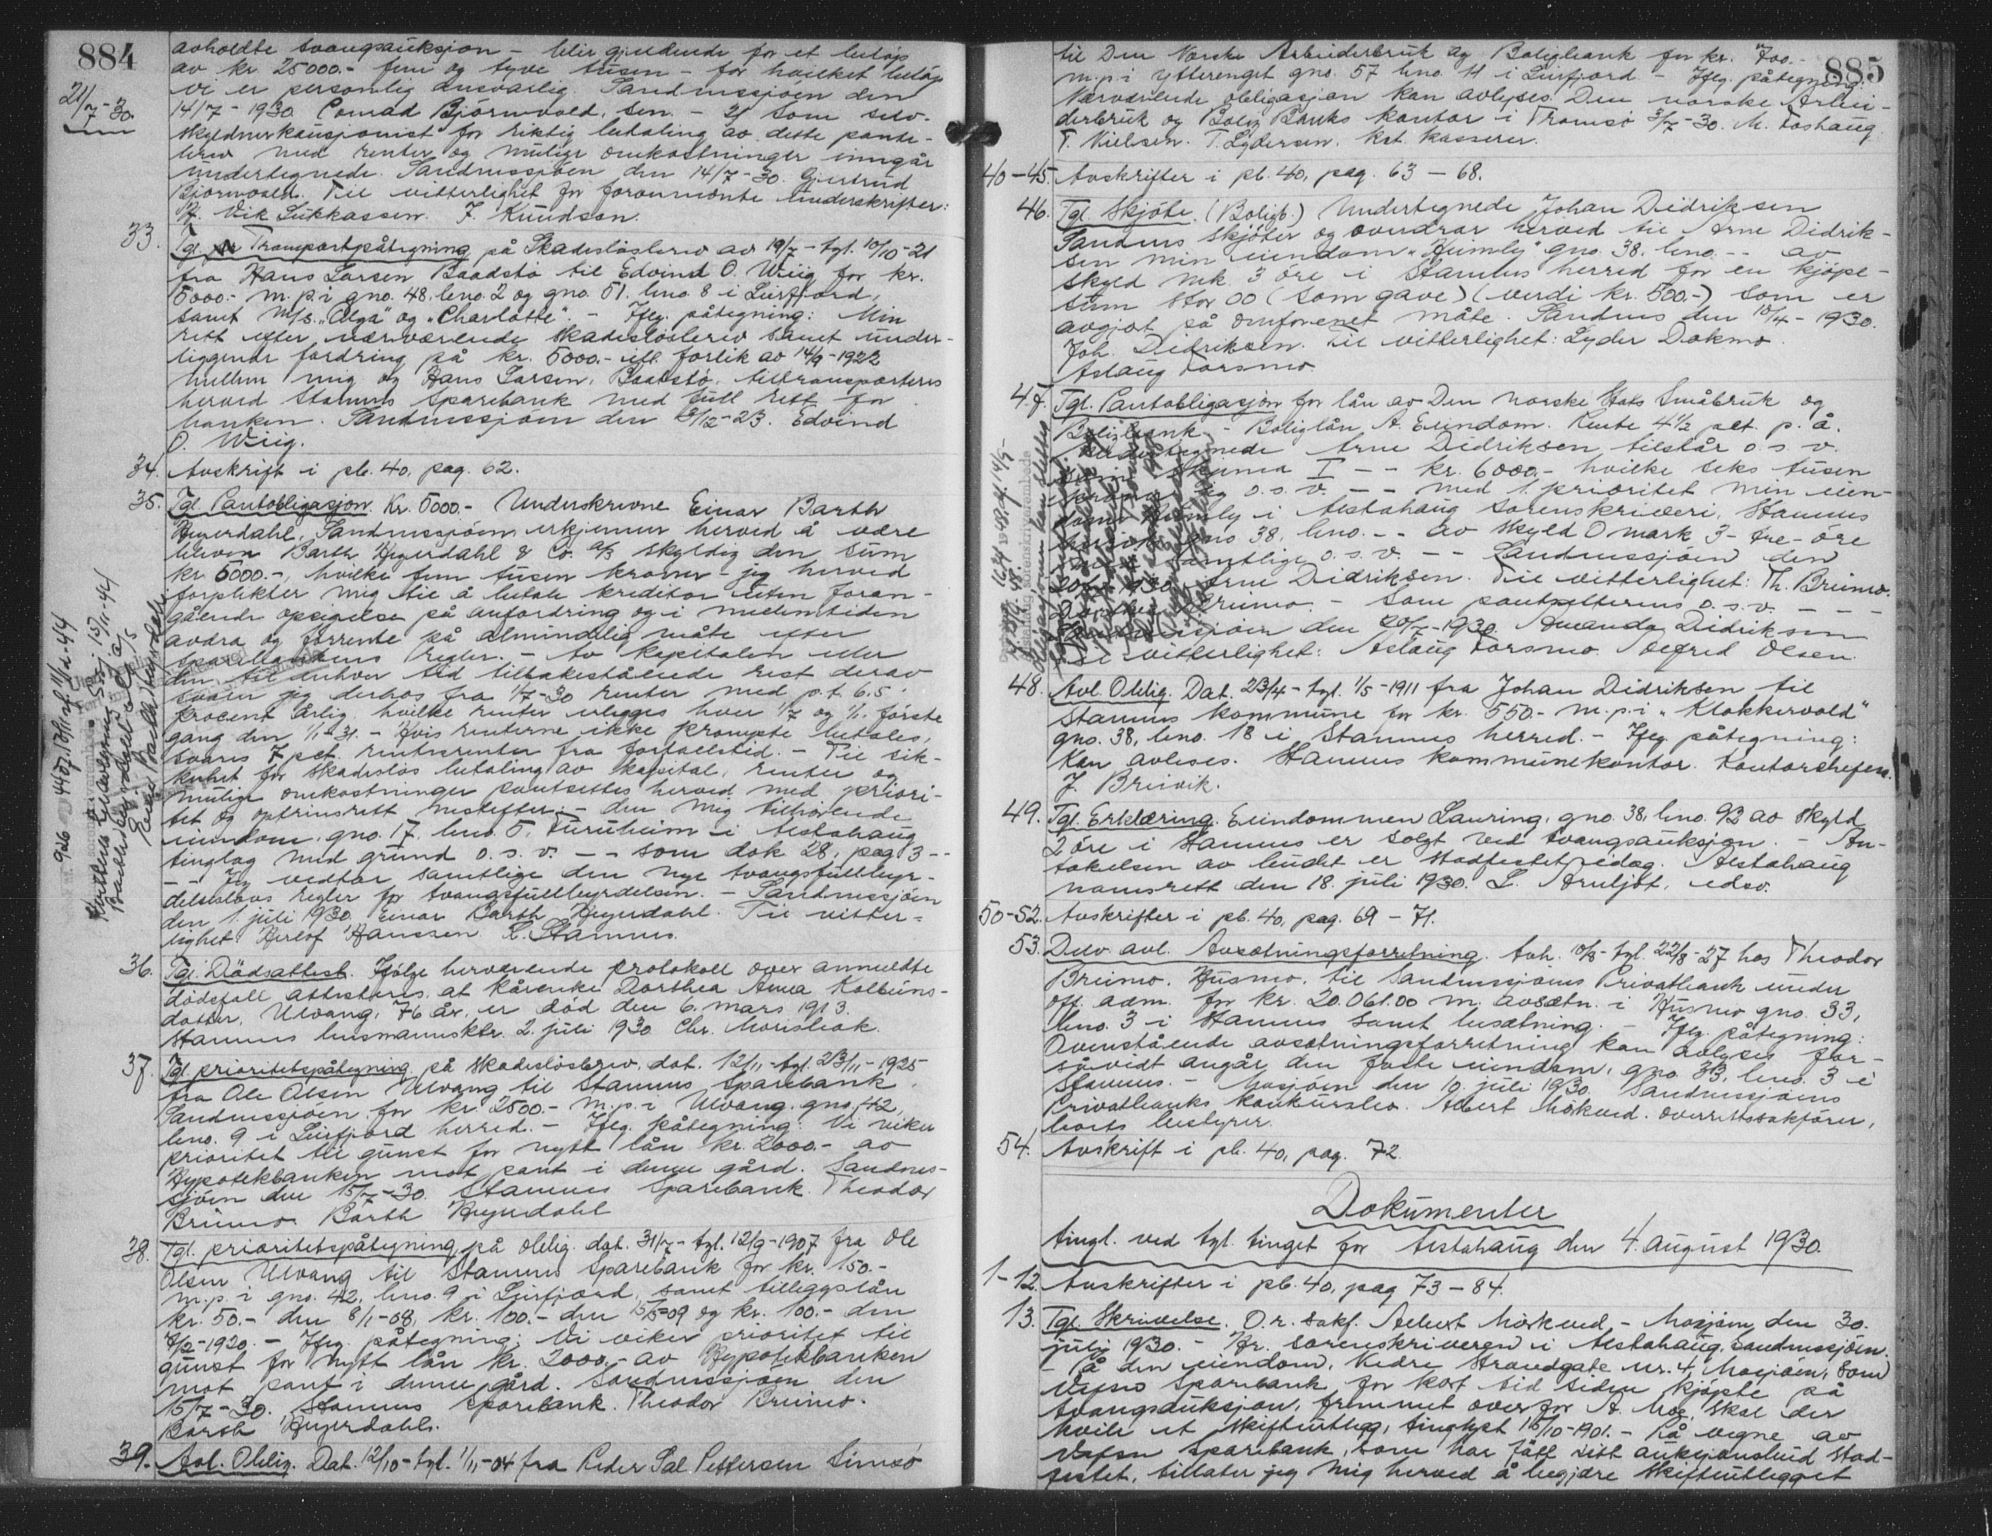 884
avholdte tvangsauksjon – blir gjeldende for et beløp
av kr. 25000.- fem og tyve tusen – for hvilket beløp
vi er personlig ansvarlig. Sandnessjøen den
21/7-30.
14/7 - 1930. Conrad Bjørnvold, sen. – Som selv-
skyldnerkausjonist for riktig betaling av dette pante-
brev med renter og mulige omkostninger inngår
undertegnede. Sandnessjøen, den 14/7-30. Gjertrud
Bjørnvold. Til vitterlighet for forannevnte underskrifter:
Vik Lukkassen. J. Knudson.
33. Tgl. Transportpåtegning på Skadesløsbrev av 19/7 - tgl. 10/10-21
fra Hans Larsen Baadstø til Edvind O. Wiig for kr.
5000.- m.p.i gno. 48. bno. 2 og gno. 51. bno. 8 i Leirfjord,
samt M/S. "Olga" og "Charlotte". – Ifg. påtegning: Min
rett efter nærværende skadesløsbrev samt under-
liggende fordring på kr. 5000.- ifl. forlik av 14/9-1922
mellem mig og Hans Larsen, Baadstø, tiltransporteres
herved Stamnes Sparebank med full rett for
banken. Sandnessjøen den 8/12-23. Edvind
O. Wiig.
34. Avskrift i pb. 40, pag. 62.
35. Tgl. Pantobligasjon. Kr. 5000.- Underskrevne Einar Barth
Heyerdahl, Sandnessjøen erkjenner herved å være
bleven Barth Heyerdahl & Co. A/S skyldig den sum
kr. 5000.-, hvilke fem tusen kroner – jeg herved
forplikter mig til å betale kreditor uten foran-
gående opsigelse på anfordring og i mellemtiden
avdra og forrente på almindelig måte efter
sparebankens regler. – Av kapitalen eller
den til enhver tid tilbakestående rest derav
svarer jeg derhos fra 1/7-30 renter med p.t. 6.5
procent årlig, hvilke renter erlegges hver 1/7 og 1/1, første
gang den 1/1-31. – Hvis renterne ikke prompte betales,
svares 7 pct. rentesrenter fra forfallstid. – Til sik-
kerhet for skadesløs betaling av kapital, renter og
mulige omkostninger pantsettes herved med priori-
tet og optrinsrett nestefter – den mig tilhørende
eiendom, gno. 17, bno. 5, Furuheim i Alstahaug
tinglag med grund o.s.v. – – som dok 28, pag 3 – –
– – Jeg vedtar samtlige den nye tvangsfullbyr-
delseslovs regler for tvangsfullbyrdelsen. – Sandnessjøen
den 1. juli 1930. Einar Barth Heyerdahl. Til vitter-
lighet: Herlof Hanssen. L. Stamnes.
36. Tgl. Dødsattest. Ifølge herværende protokoll over anmeldte
dødsfall attesteres, at kårenke Dorthea Anna Kolbeins-
datter, Ulvang, 76 år, er død den 6. mars 1913.
Stamnes lensmannsktr. 2. juli 1930. Chr. Morisbak.
37. Tgl. prioritetspåtegning på skadesløsbrev, dat. 12/11 - tgl. 23/11-1925
fra Ole Olsen Ulvang til Stamnes Sparebank,
Sandnessjøen for kr. 2500.- m.p.i Ulvang, gno. 42,
bno. 9 i Leirfjord herred. – Ifg. påtegning: Vi viker
prioritet til gunst for nytt lån kr. 2000.- av
Hypotekbanken mot pant i denne gård. Sandnes-
sjøen den 15/7-30. Stamnes Sparebank. Theodor
Breimo. Barth Heyerdahl
38. Tgl. prioritetspåtegning på oblig. dat. 31/7 - tgl. 12/9-1907 fra Ole
Olsen Ulvang til Stamnes Sparebank for kr. 150.-
m.p. i gno. 42, bno. 9 i Leirfjord, samt tilleggslån
kr. 50.- den 8/1-08, kr. 100.- den 15/5-09 og kr. 100.- den
4/2-1920. – Ifg. påtegning: Vi viker prioritet til
gunst for nytt lån kr. 2000.- av Hypotekbanken
mot pant i denne gård. Sandnessjøen den
15/7-30. Stamnes Sparebank. Theodor Breimo.
Barth Heyerdahl.
39. Avl. Oblig. Dat. 12/10 - tgl. 1/11-04 fra Peder Sal Pettersen Simsø
885
til Den Norske Arbeiderbruk og Boligbank for kr. 700.-
m.p.i Ytterenget gno. 57 bno. 11 i Leirfjord – Ifg. påtegning:
Nærværende obligasjon kan avlyses. Den norske Arbei-
derbruk og Bolig Banks kontor i Tromsø 3/7-30. M. Foshaug.
T. Nielsen. T. Lydersen. kst. kasserer.
40-45. Avskrifter i pb. 40, pag. 63 – 68.
46. Tgl. Skjøte. (Boligb.) Undertegnede Johan Didriksen
Sandnes skjøter og overdrar herved til Arne Didrik-
sen min eiendom "Heimly" gno. 38. bno. – – av
skyld mk 3 øre i Stamnes herred for en kjøpe-
sum stor 00 (som gave) (verdi kr. 500.-) som er
avgjort på omforenet måte. Sandnes den 10/4 - 1930.
Joh. Didriksen. Til vitterlighet: Lyder Dokmo.
Aslaug Forsmo.
47. Tgl. Pantobligasjon for lån av Den norske Stats Småbruk og
Boligbank – Boliglån A. Eiendom. Rente 4½ pct. p. å.
Undertegnede Arne Didriksen tilstår o.s.v.
I – – kr. 6000.- hvilke seks tusen
kroner jeg o.s.v. – – med 1. prioritet min eien-
dom Heimly i Alstahaug sorenskriveri, Stamnes
gno 38, bno. – – av skyld 0 mark 3 – tre – øre
samtlige o.s.v. – – Sandnessjøen den
Arne Didriksen. Til vitterlighet: Th. Breimo.
Breimo. – Som pantsetterens o.s.v. – – –
den 20/7-1930. Amanda Didriksen
Til vitterlighet: Aslaug Forsmo. Alfred Olsen.
48. Avl. Oblig. Dat. 23/4 - tgl. 1/5-1911 fra Johan Didriksen til
Stamnes kommune for kr. 550.- m.p.i "Klokkervold"
gno. 38, bno. 18 i Stamnes herred. – Ifg. påtegning:
Kan avleses. Stamnes kommunekontor. Kontorchefen.
J. Breivik.
49. Tgl. Erklæring. Eiendommen Lauring, gno. 38, bno. 93 av skyld
2 øre i Stamnes er solgt ved tvangsauksjon. – An-
takelsen av budet er stadfestet idag. Alstahaug
namsrett den 18. juli 1930. L. Arnljot, edsv.
50-52. Avskrifter i pb. 40, pag. 69 – 71.
53. Delv. avl. Avsetningsforretning. Avh. 10/8 - tgl. 22/8-27 hos Theodor
Breimo. Husmo. til Sandnessjøens Privatbank under
off. adm. for kr. 20.061.00 m. avsetn. i Husmo gno. 33,
bno. 3 i Stamnes samt besetning. – Ifg. påtegning:
Ovenstående avsetningsforretning kan avlyses for-
såvidt angår den faste eiendom, gno. 33, bno. 3 i
Stamnes. – Mosjøen den 10. juli 1930. Sandnessjøens
Privatbanks konkursbo. Albert Mørkved. overrettssakfører,
boets bestyrer.
54. Avskrift i pb. 40, pag. 72.
Dokumenter
tingl. ved tgl. tinget for Alstahaug den 4. august 1930.
1-12. Avskrifter i pb. 40, pag 73 – 84.
13. Tgl. Skrivelse. O.r. sakf. Albert Mørkved – Mosjøen, den 30.
juli 1930. – Hr. sorenskriveren i Alstahaug, Sandnessjøen.
– På den eiendom, Nedre Strandgate nr. 4, Mosjøen, som
Vefsn Sparebank for kort tid siden kjøpte på
tvangsauksjon, fremmet overfor A. Moe, skal der
hvile et skifteutlegg, tinglyst 15/10-1901. – På vegne av
Vefsn Sparebank, som har fått sitt auksjonsbud stad-
festet, tillater jeg mig herved å begjære skifteutlegget